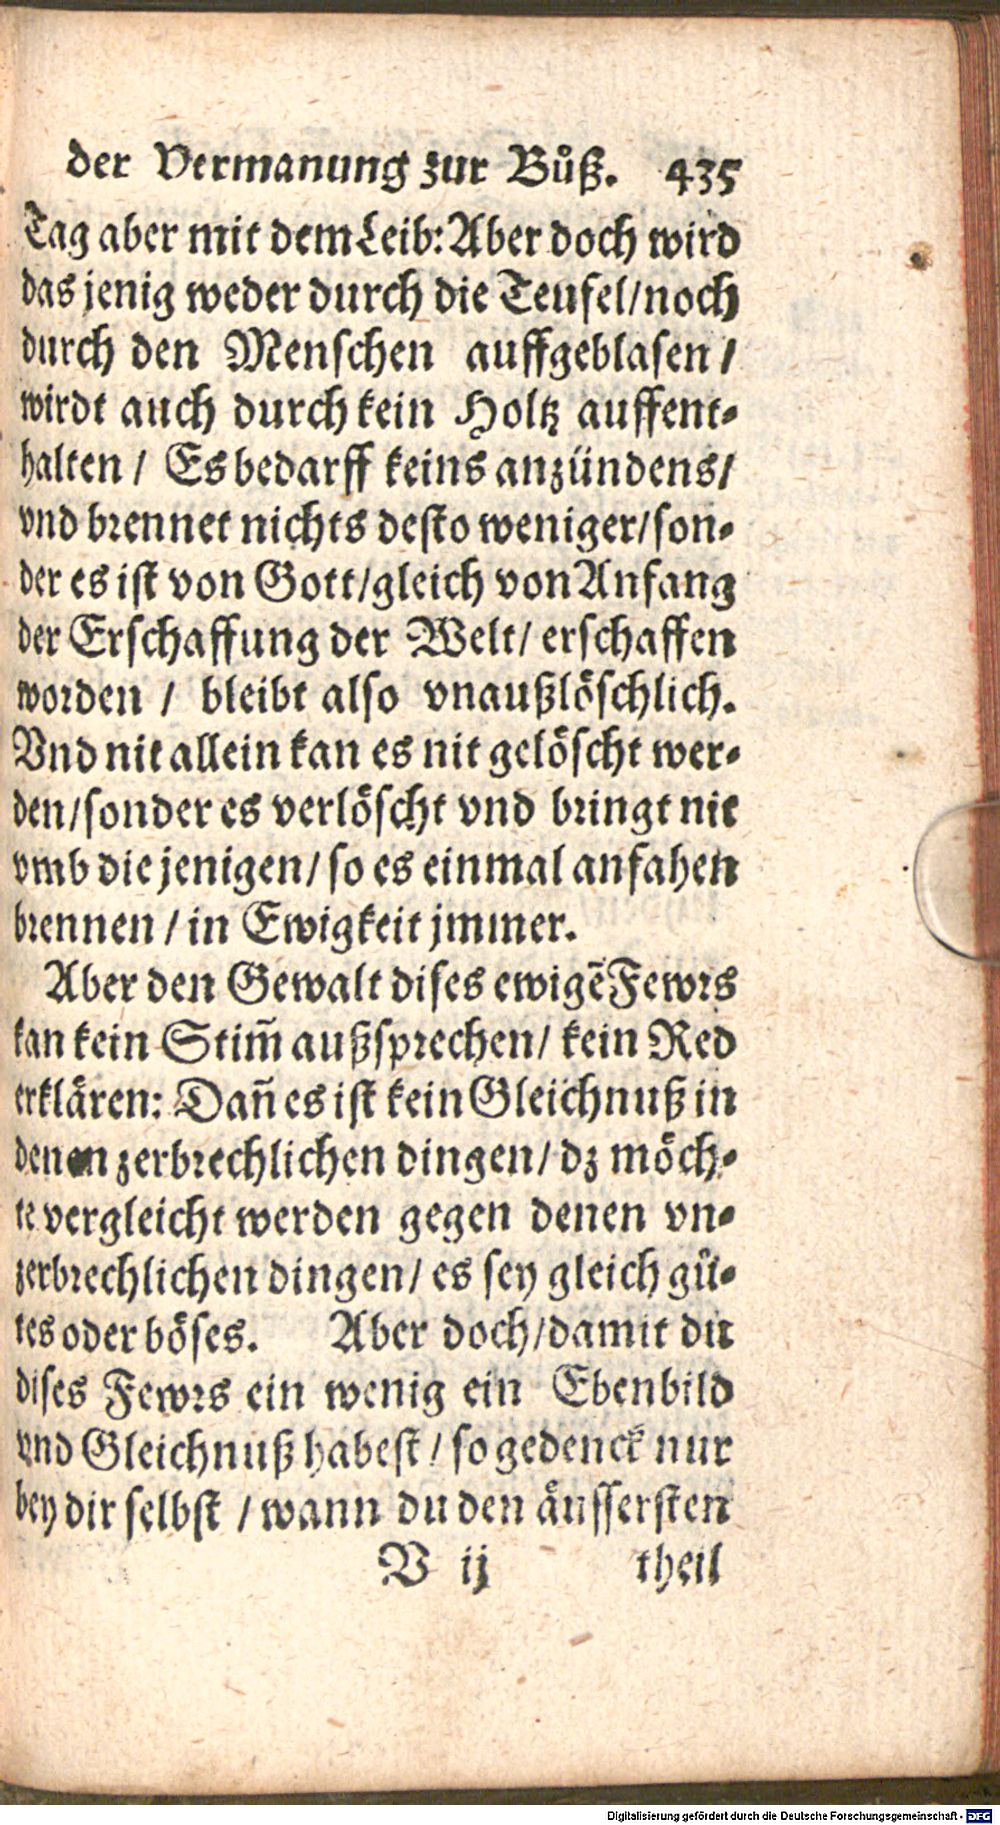 der Vermanung zur Bůß. 435
Tag aber mit dem Leib: Aber doch wird
das jenig weder durch die Teufel/noch
durch den Menschen auffgeblasen/
wirdt auch durch kein Holtz auffent-
halten/ Es bedarff keins anzündens/
vnd brennet nichts desto weniger/son-
der es ist von Gott/gleich von Anfang
der Erschaffung der Welt/ erschaffen
worden/ bleibt also vnaußlöschlich.
Vnd nit allein kan es nit gelöscht wer-
den/sonder es verlöscht vnd bringt nit
vmb die jenigen/ so es einmal anfahen
brennen/ in Ewigkeit jmmer.
Aber den Gewalt dises ewigē Fewrs
kan kein Stim̄ außsprechen/ kein Red
erklären: Dañ es ist kein Gleichnuß in
denen zerbrechlichen dingen/ dz möch-
te vergleicht werden gegen denen vn-
zerbrechlichen dingen/ es sey gleich gů-
tes oder böses. Aber doch/damit du
dises Fewrs ein wenig ein Ebenbild
vnd Gleichnuß habest/ so gedenck nur
bey dir selbst/ wann du den äussersten
V ij theil
Digitalisierung gefördert durch die Deutsche Forschungsgemeinschaft - DFG